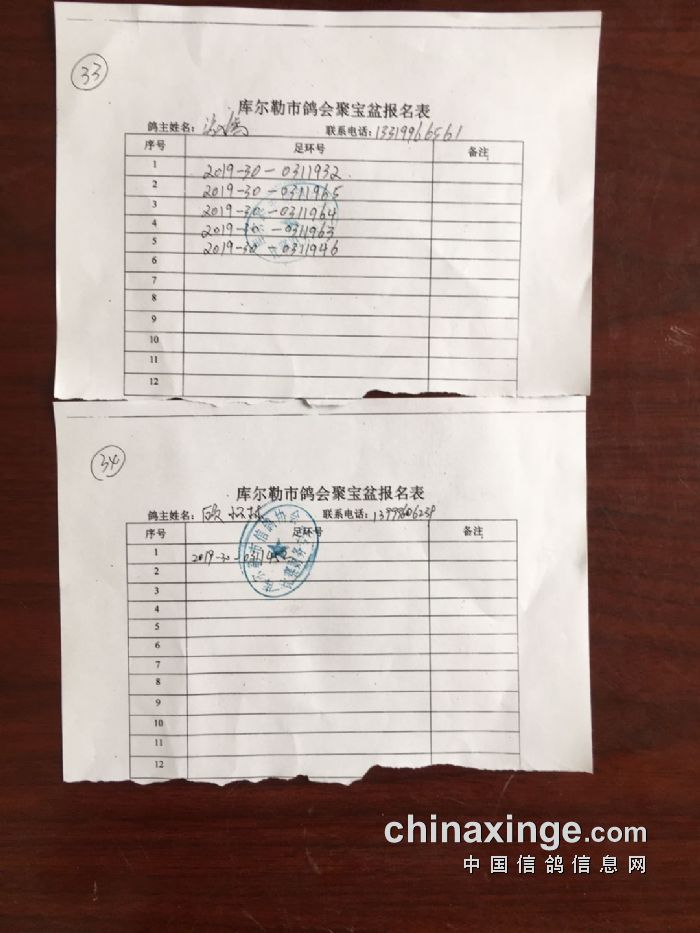 33
库尔勒市鸽会聚宝盆报名表
鸽主姓名: 联系电话: 13319966561
序号 足环号 备注
1 2019-30-0311932
2 2019-30-0311965
3 2019-30-0311964
4 2019-30-0311963
5 2019-30-0311946
6
7
8
9
10
11
12
34
库尔勒市鸽会聚宝盆报名表
鸽主姓名: 联系电话:
序号 足环号 备注
1 2019-30-
2
3
4
5
6
7
8
9
10
11
12
chinaxinge.com
中国信鸽信息网